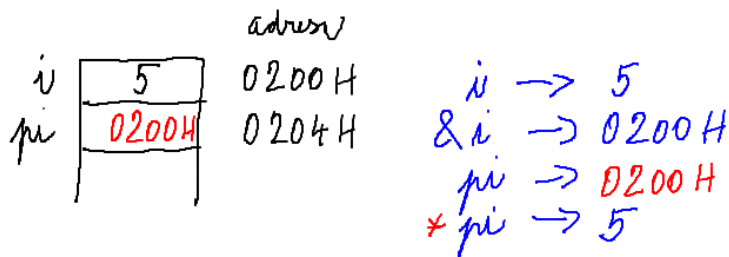 adresa
i 5 0200H
pi 0200H 0204H
i → 5
&i → 0200H
pi → 0200H
*pi → 5